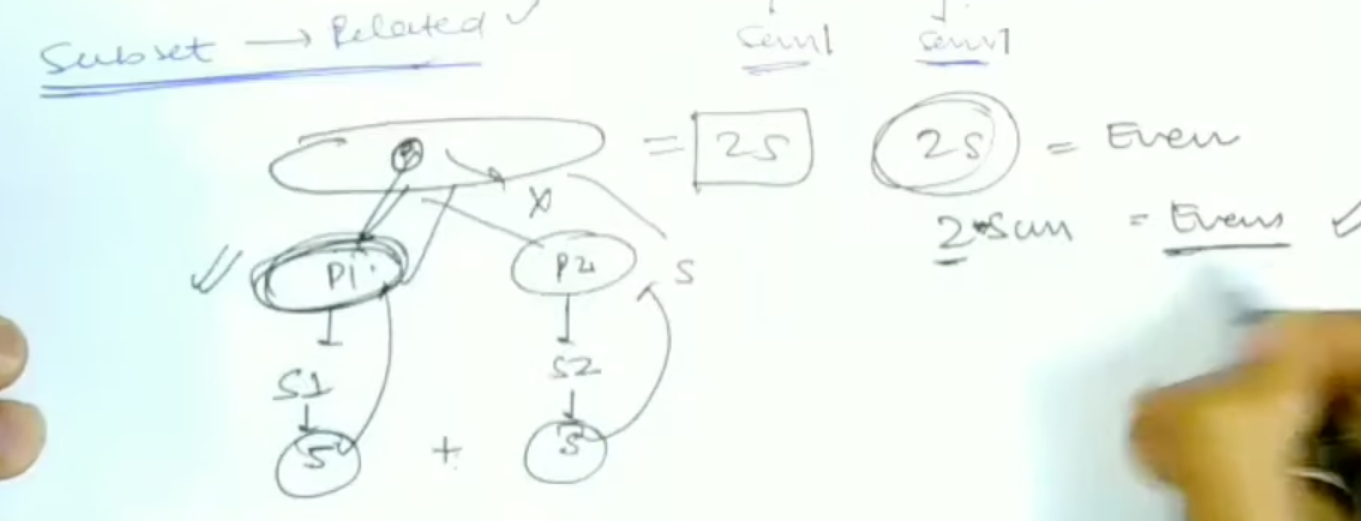 Subset → Related ✓
Sum1 Sum1
= 2S 2S = Even
2*Sum = Even ✓
X
P1 P2 S
S1 S2
S + S